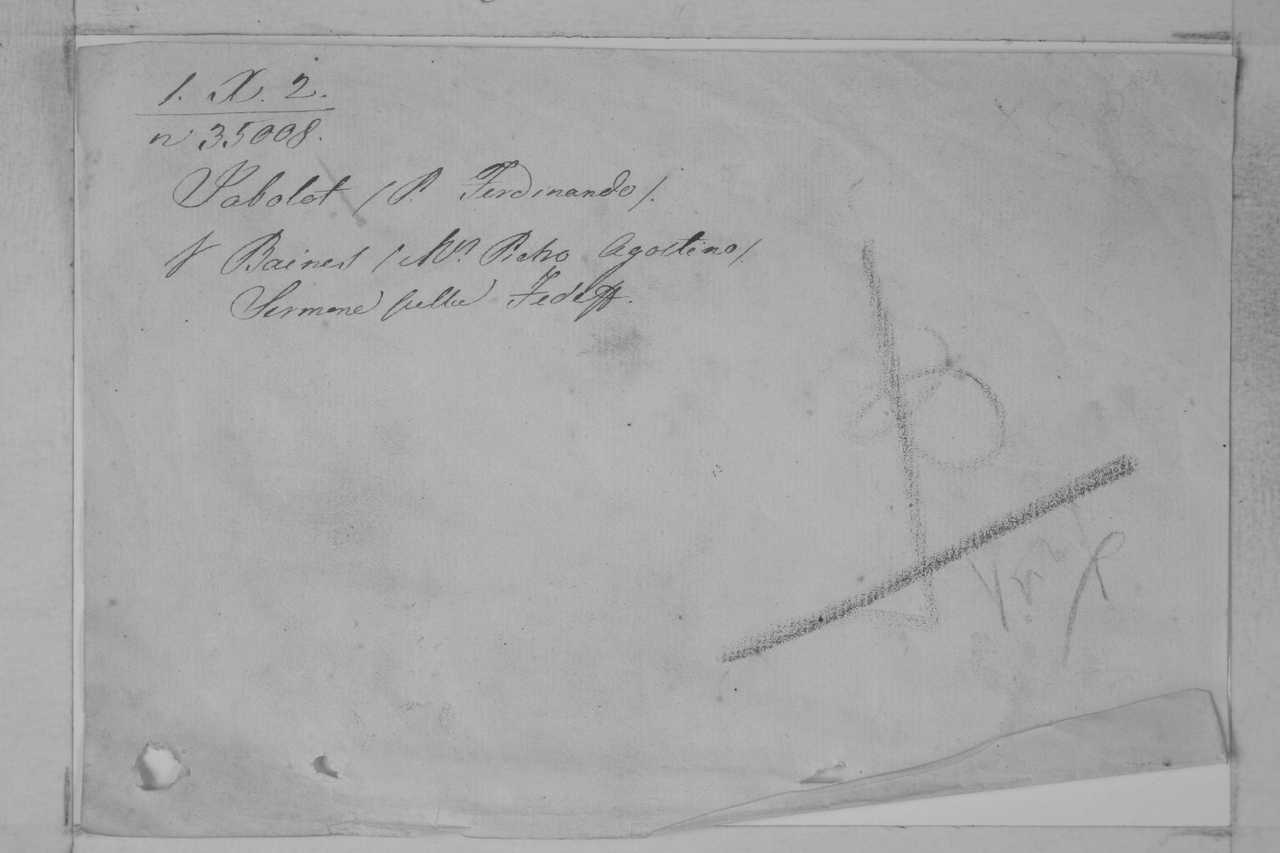 1. X. 2.
n 35008.
Jabolot (P. Ferdinando).
V Baines (Mr. Pietro Agostino)
Sermone sulla Fede